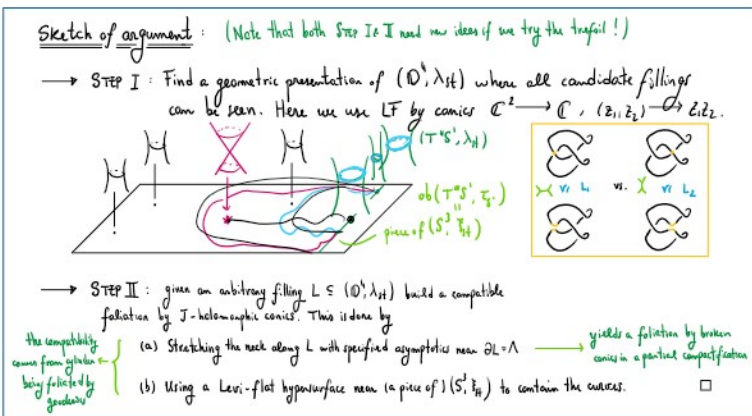 Sketch of argument : (Note that both STEP I & II need new ideas if we try the trefoil !)
→ STEP I : Find a geometric presentation of (D⁴, λst) where all candidate fillings
can be seen. Here we use LF by conics ℂ² → ℂ , (z₁, z₂) → z₁z₂.
(T*S¹, λst)
ob(T*S¹, τs¹)
piece of (S³, ξst)
L₁ vs. L₂
→ STEP II : given an arbitrary filling L ⊆ (D⁴, λst) build a compatible
foliation by J-holomorphic conics. This is done by
the compatibility
comes from cylinder
being foliated by
geodesics
(a) Stretching the neck along L with specified asymptotics near ∂L = Λ
yields a foliation by broken
conics in a partial compactification
(b) Using a Levi-flat hypersurface near (a piece of) (S³, ξst) to contain the curves. □